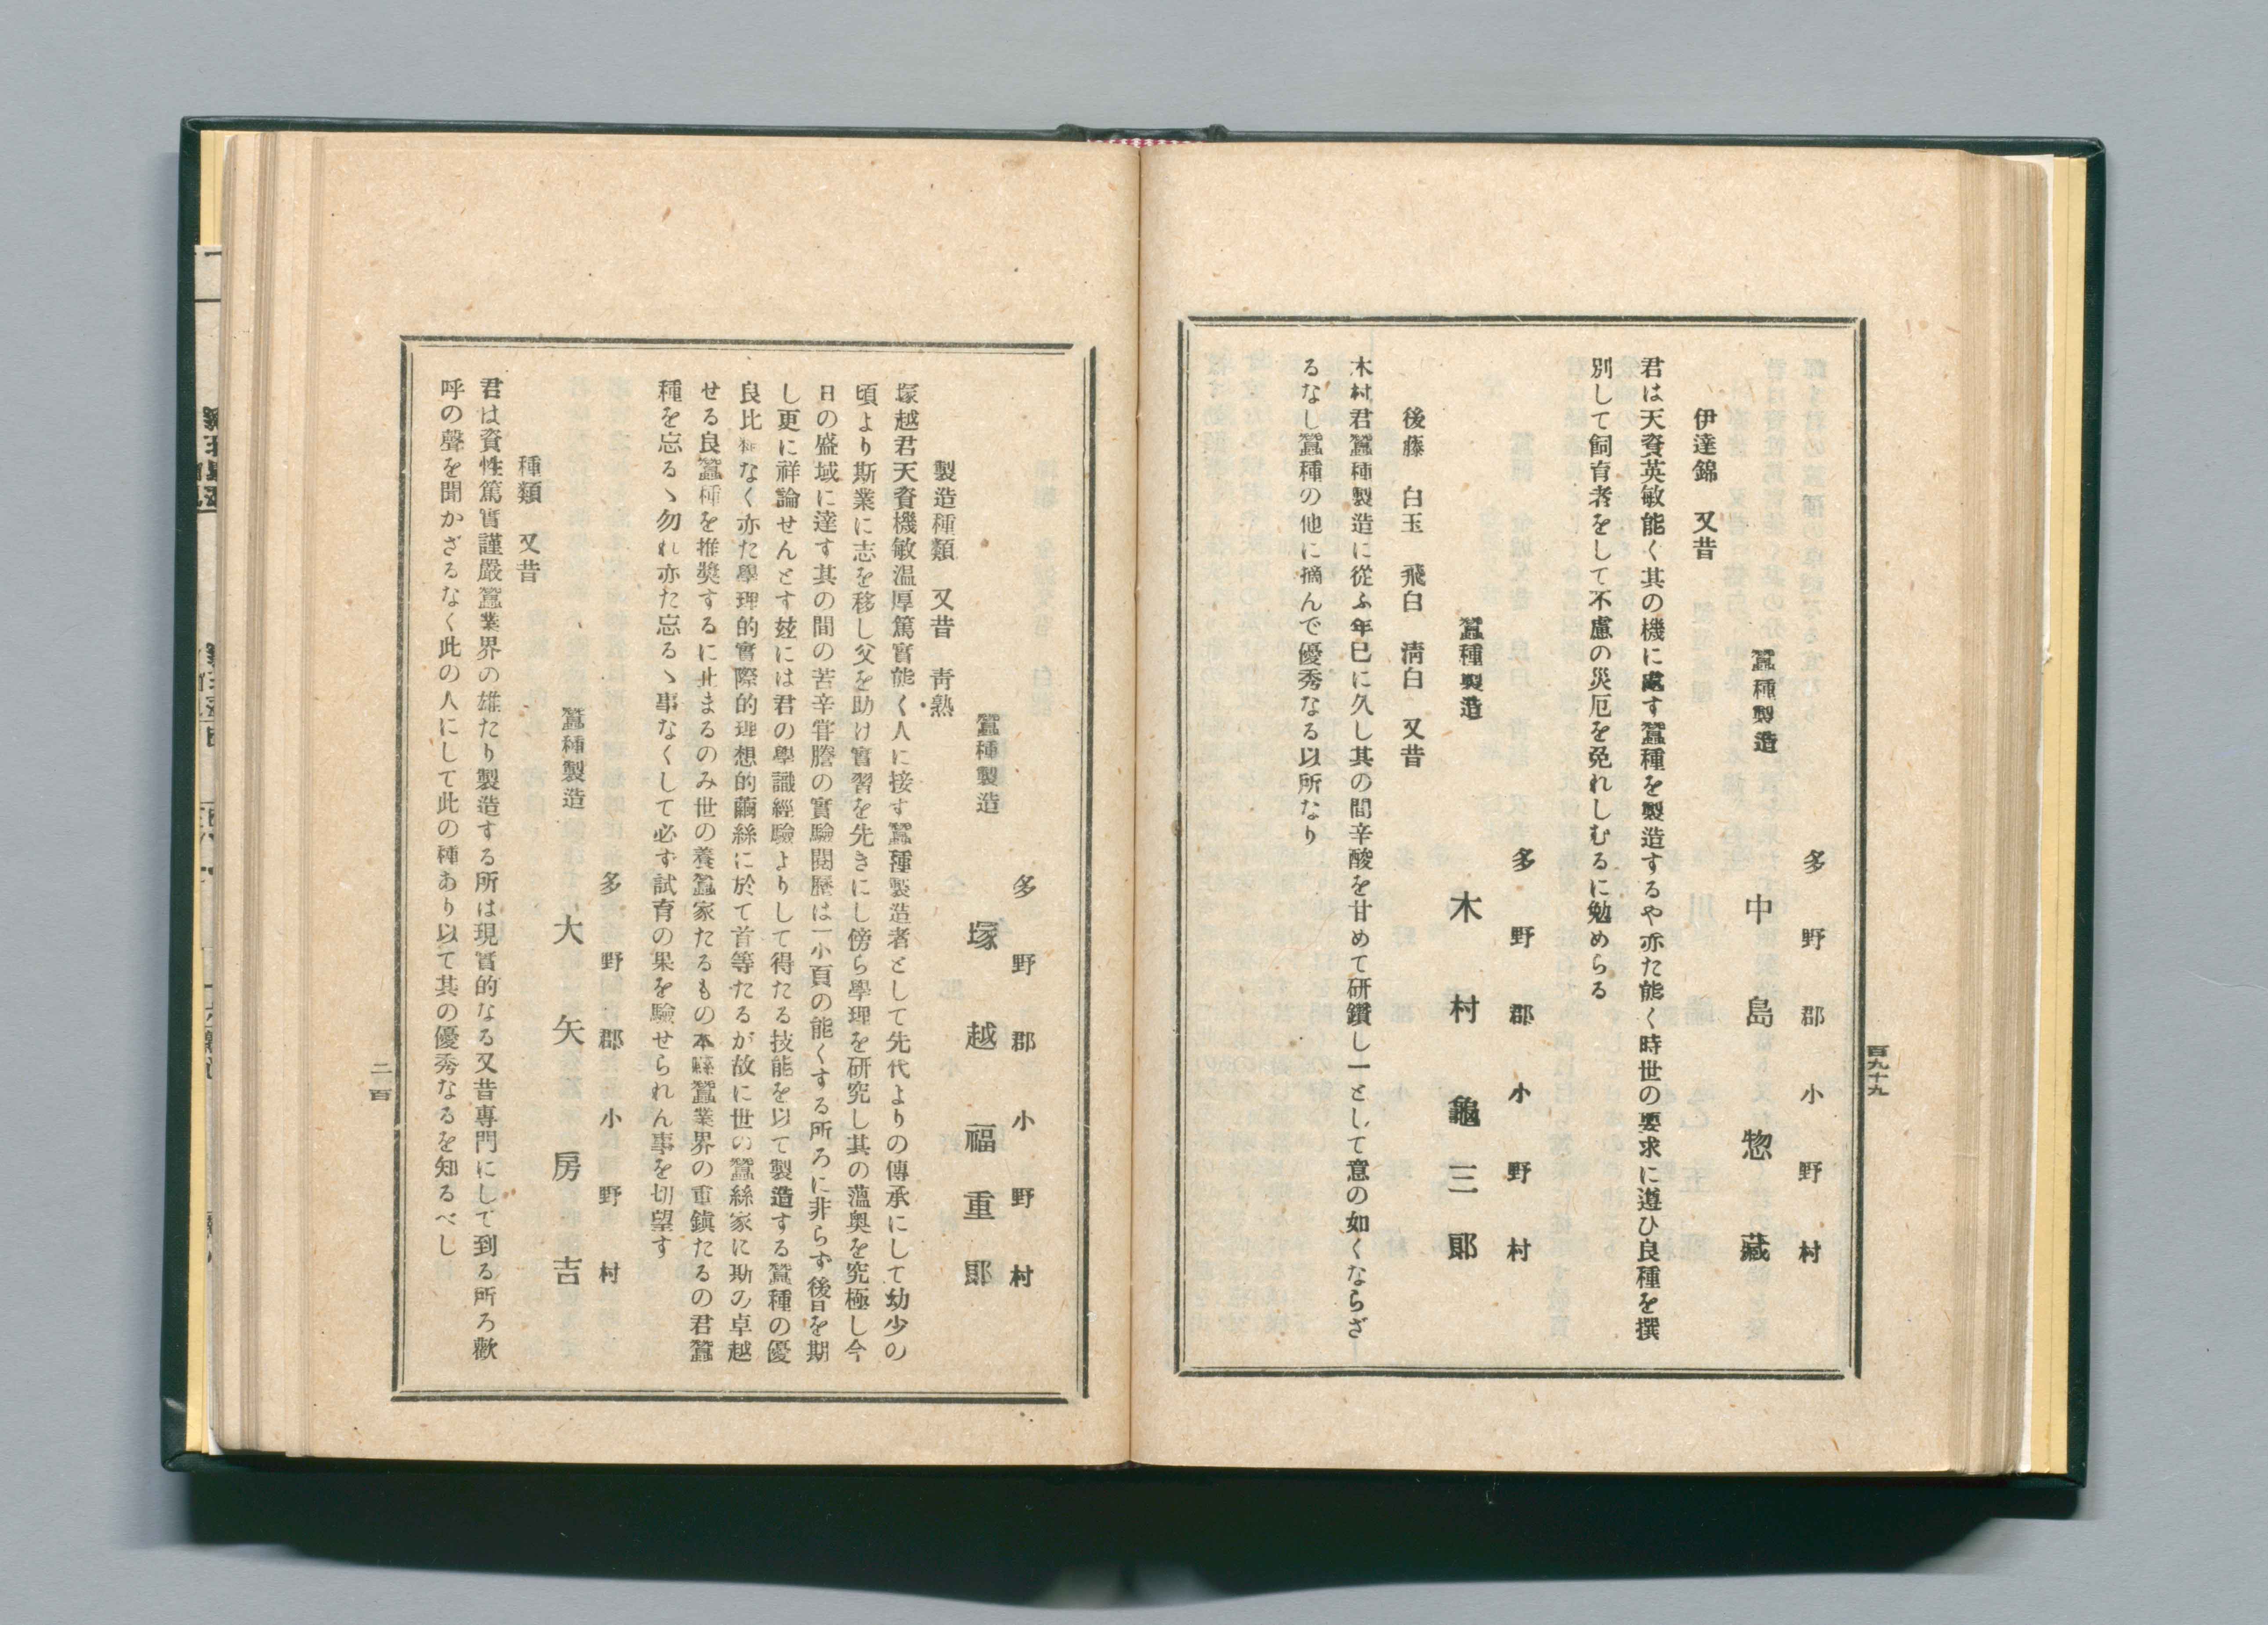 百九十九
多野郡小野村
蠶種製造　中島惣藏
伊達錦　又昔
君は天資英敏能く其の機に處す蠶種を製造するや亦た能く時世の要求に遵ひ良種を撰
別して飼育者をして不慮の災厄を免れしむるに勉めらる
多野郡小野村
蠶種製造　木村龜三郞
後藤　白玉　飛白　淸白　又昔
木村君蠶種製造に從ふ年已に久し其の間辛酸を甘めて研鑽し一として意の如くならざ
るなし蠶種の他に摘んで優秀なる以所なり
多野郡小野村
蠶種製造　塚越福重郞
製造種類　又昔　靑熟
塚越君天資機敏温厚篤實能く人に接す蠶種製造者として先代よりの傳承にして幼少の
頃より斯業に志を移し父を助け實習を先きにし傍ら學理を研究し其の薀奥を究極し今
日の盛域に達す其の間の苦辛甞膽の實驗閲歷は一小頁の能くする所ろに非らず後日を期
し更に祥論せんとす玆には君の學識經驗よりして得たる技能を以て製造する蠶種の優
良比類なく亦た學理的實際的理想的繭絲に於て首等たるが故に世の蠶絲家に斯の卓越
せる良蠶種を推奬するに止まるのみ世の養蠶家たるもの本縣蠶業界の重鎭たるの君蠶
種を忘るゝ勿れ亦た忘るゝ事なくして必ず試育の果を驗せられん事を切望す
多野郡小野村
蠶種製造　大矢房吉
種類　又昔
君は資性篤實謹嚴蠶業界の雄たり製造する所は現實的なる又昔專門にして到る所ろ歡
呼の聲を聞かざるなく此の人にして此の種あり以て其の優秀なるを知るべし
二百